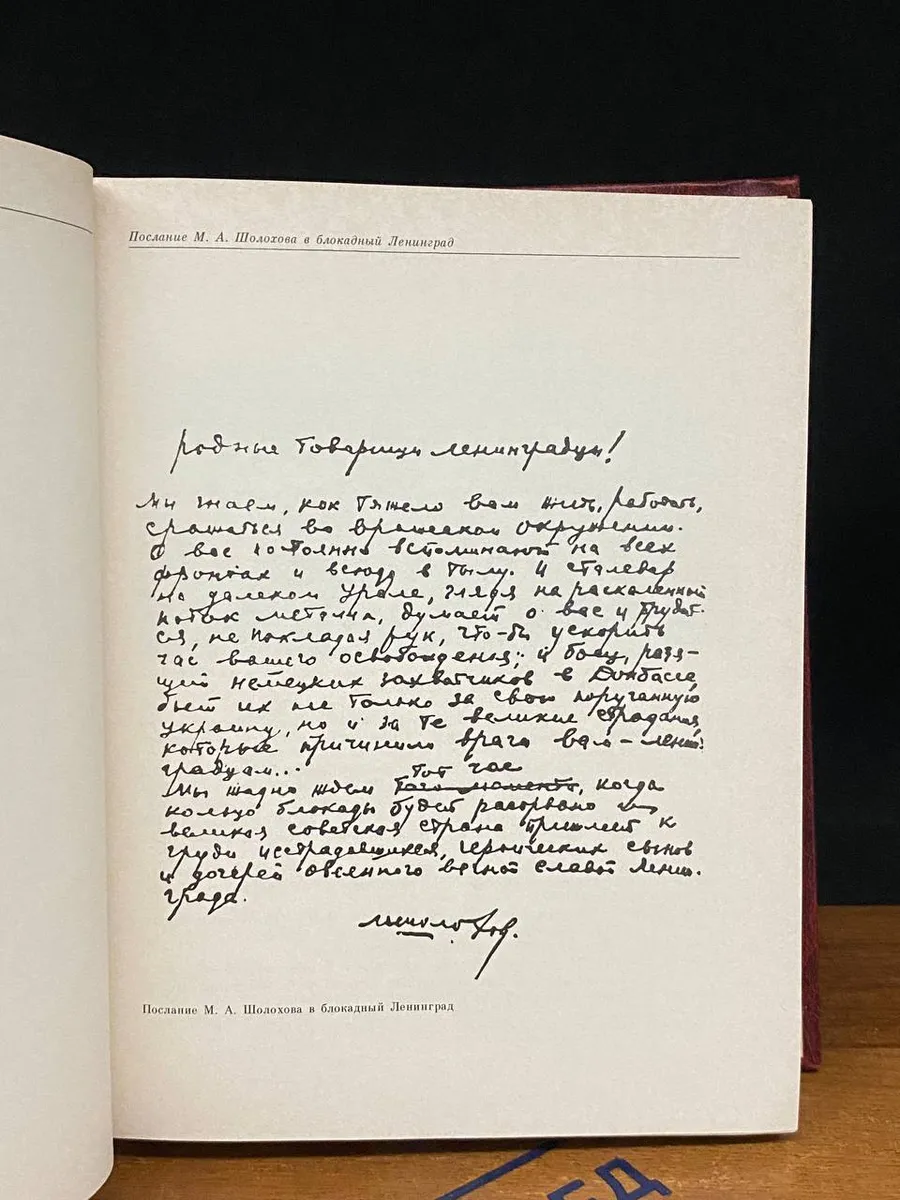 Послание М. А. Шолохова в блокадный Ленинград
Родные товарищи ленинградцы!
Мы знаем, как тяжело вам жить, работать,
сражаться во вражеском окружении.
О вас постоянно вспоминают на всех
фронтах и всюду в тылу. И сталевар
на далеком Урале, глядя на раскаленный
поток металла, думает о вас и трудит-
ся, не покладая рук, что-бы ускорить
час вашего освобожденья; и боец, разя-
щий немецких захватчиков в Донбассе,
бьет их не только за свою поруганную
Украину, но и за те великие страдания,
которые причинили враги вам – ленин-
градцам...
тот час
Мы жадно ждем того момента, когда
кольцо блокады будет разорвано и
великая советская страна прижмет к
груди исстрадавшихся, героических сынов
и дочерей овеянного вечной славой Ленин-
града.
М. Шолохов.
Послание М. А. Шолохова в блокадный Ленинград